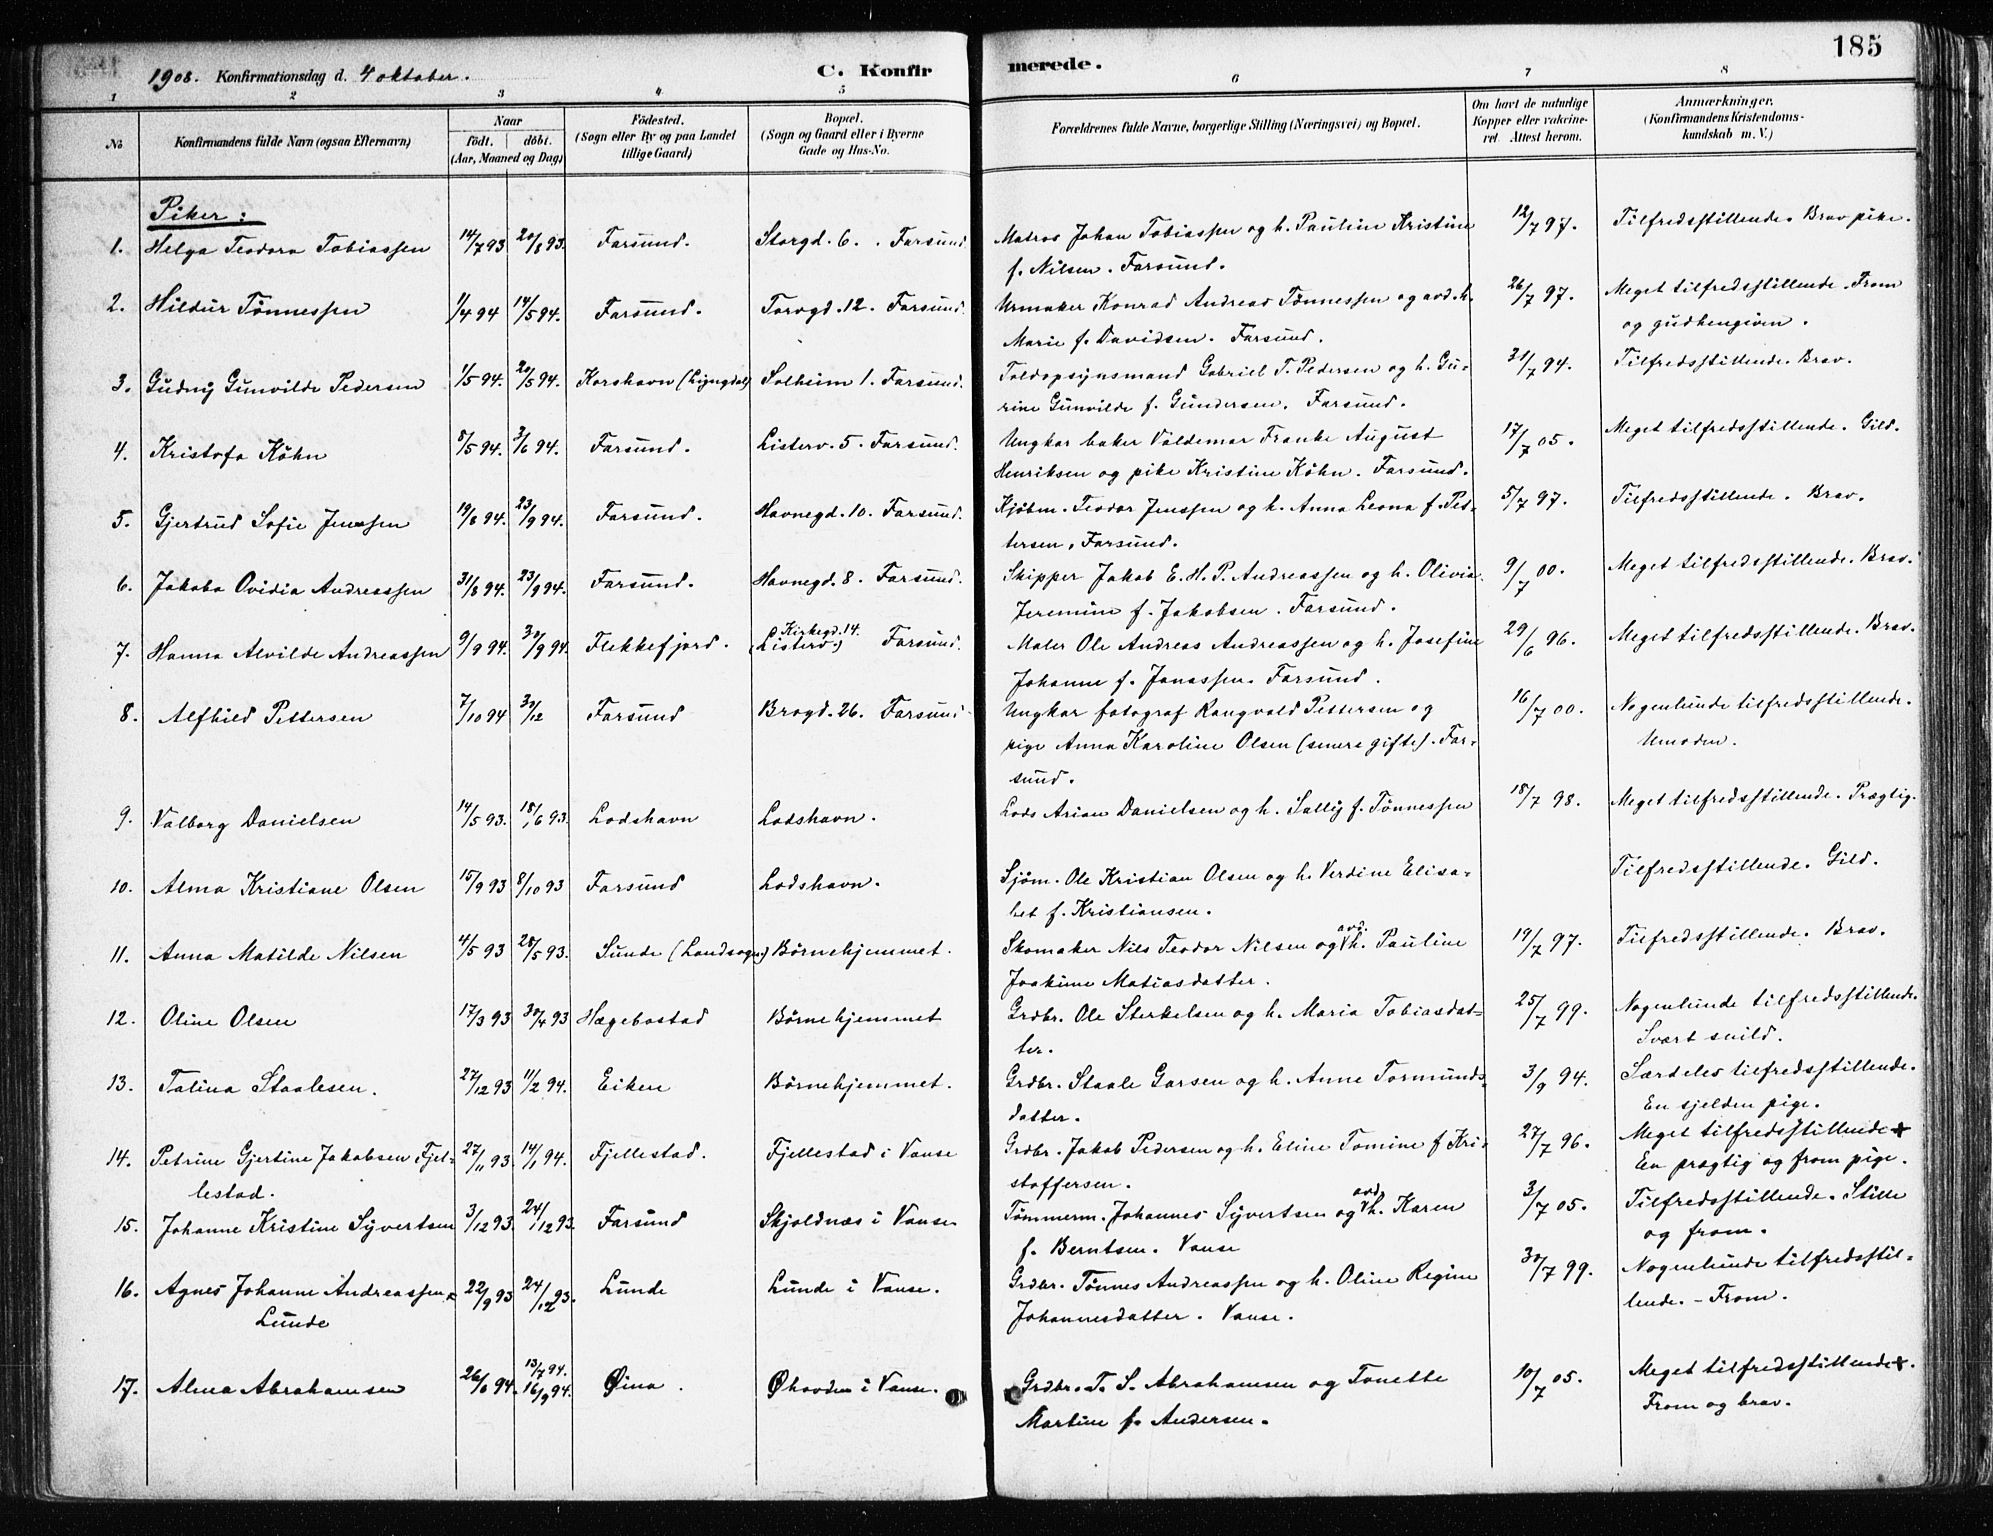 185
1908. Konfirmationsdag d. 4 oktober. C. Konfirmerede.
1 2 3 4 5 6 7 8
No Konfirmandens fulde Navn (ogsaa Efternavn) Naar født. døbt. (Aar, Maaned og Dag) Fødested. (Sogn eller By og paa Landet tillige Gaard) Bopæl. (Sogn og Gaard eller i Byerne Gade og Hus-No. Forældrenes fulde Navne, borgerlige Stilling (Næringsvei) og Bopæl. Om havt de naturlige Kopper eller vakcineret. Attest herom. Anmærkninger. (Konfirmandens Kristendomskundskab m. V.)
Piker:
1. Helga Teodora Tobiassen 14/7 93 20/8 93. Farsund. Storgd. 6. Farsund. Matros Johan Tobiassen og h. Pauline Kristine 12/7 97. Tilfredsstillende. Brav pike.
f. Nilsen. Farsund.
2. Hildur Tønnessen 1/4 94 14/5 94. Farsund. Torvgd. 12. Farsund. Urmaker Konrad Andreas Tønnessen og avd. h. 26/7 97. Meget tilfredsstillende. From
Marie f. Davidsen. Farsund. og gudhengiven.
3. Gudny Gunvilde Pedersen 1/5 94. 20/5 94. Korshavn (Lyngdal) Solheim 1. Farsund. Toldopsynsmand Gabriel T. Pedersen og h. Gu- 31/7 94. Tilfredsstillende. Brav.
rine Gunvilde f. Gundersen. Farsund.
4. Kristofa Køhn 8/5 94. 3/6 94. Farsund. Listerv. 5. Farsund. Ungkar baker Valdemar Franke August 17/7 05. Meget tilfredsstillende. Gild.
Henriksen og pike Kristine Køhn. Farsund.
5. Gjertrud Sofie Jenssen 19/8 94. 23/9 94. Farsund. Havnegd. 10. Farsund. Kjøbm. Teodor Jenssen og h. Anna Leona f. Ped- 5/7 97. Tilfredsstillende. Brav.
tersen, Farsund.
6. Jakoba Ovidia Andreassen 31/8 94. 23/9 94. Farsund. Havnegd. 8. Farsund. Skipper Jakob E. H. P. Andreassen og h. Olivia 9/7 00. Meget tilfredsstillende. Brav.
Jeremine f. Jakobsen. Farsund.
7. Hanna Alvilde Andreassen 9/9 94. 30/9 94. Flekkefjord. Kirkegd. 14. (Listerv.) Farsund. Maler Ole Andreas Andreassen og h. Josefine 29/6 96. Meget tilfredsstillende. Brav.
Johanne f. Jonassen. Farsund.
8. Alfhild Pettersen 7/10 94 30/12 Farsund Brogd. 26. Farsund. Ungkar fotograf Rangvald Pettersen og 16/7 00. Nogenlunde tilfredsstillende.
pige Anna Karoline Olsen (senere gifte). Far- Umoden.
sund.
9. Valborg Danielsen 14/5 93. 18/6 93. Lodshavn Lodshavn. Lods Arian Danielsen og h. Sally f. Tønnessen 18/7 98. Meget tilfredsstillende. Prægtig.
10. Alma Kristiane Olsen 15/9 93 8/10 93 Farsund Lodshavn. Sjøm. Ole Kristian Olsen og h. Verdine Elisa- Tilfredsstillende. Gild.
bet f. Kristiansen.
11. Anna Matilde Nilsen 4/5 93 28/5 93. Sunde (Landsogn) Børnehjemmet. Skomaker Nils Teodor Nilsen og avd. h. Pauline 19/7 97. Tilfredsstillende. Brav.
Joakime Matiasdatter.
12. Oline Olsen 17/3 93 30/4 93 Hægebostad Børnehjemmet Grdbr. Ole Sterkelsen og h. Maria Tobiasdat- 25/7 99. Nogenlunde tilfredsstillende.
ter. Svært snild.
13. Talina Staalesen. 27/12 93 11/2 94. Eiken Børnehjemmet. Grdbr. Staale Garsen og h. Anne Tormunds- 3/9 94. Særdeles tilfredsstillende.
datter. En sjelden pige.
14. Petrine Gjertine Jakobsen Fjel- 27/11 93. 14/1 94. Fjellestad. Fjellestad i Vanse Grdbr. Jakob Pedersen og h. Eline Tomine f Kri- 27/7 96. Meget tilfredsstillende
lestad. stoffersen. En prægtig og from pige.
15. Johanne Kristine Syvertsen 3/12 93. 24/12 93. Farsund Skjoldnæs i Vanse Tømmerm. Johannes Syvertsen og avd. h. Karen 3/7 05. Tilfredsstillende. Stille
f. Berntsen. Vanse og from.
16. Agnes Johanne Andreassen 22/9 93 24/12 93. Lunde Lunde i Vanse. Grdbr. Tønnes Andreassen og h. Oline Regine 30/7 99. Nogenlunde tilfredsstil-
Lunde Johannesdatter. Vanse. lende. - From.
13/7 94.
17. Alma Abrahamsen 26/6 94. 16/9 94. Øina. Øhovden i Vanse. Grdbr. T. S. Abrahamsen og Tonette 10/7 05. Meget tilfredsstillende.
Martine f. Andersen. From og brav.